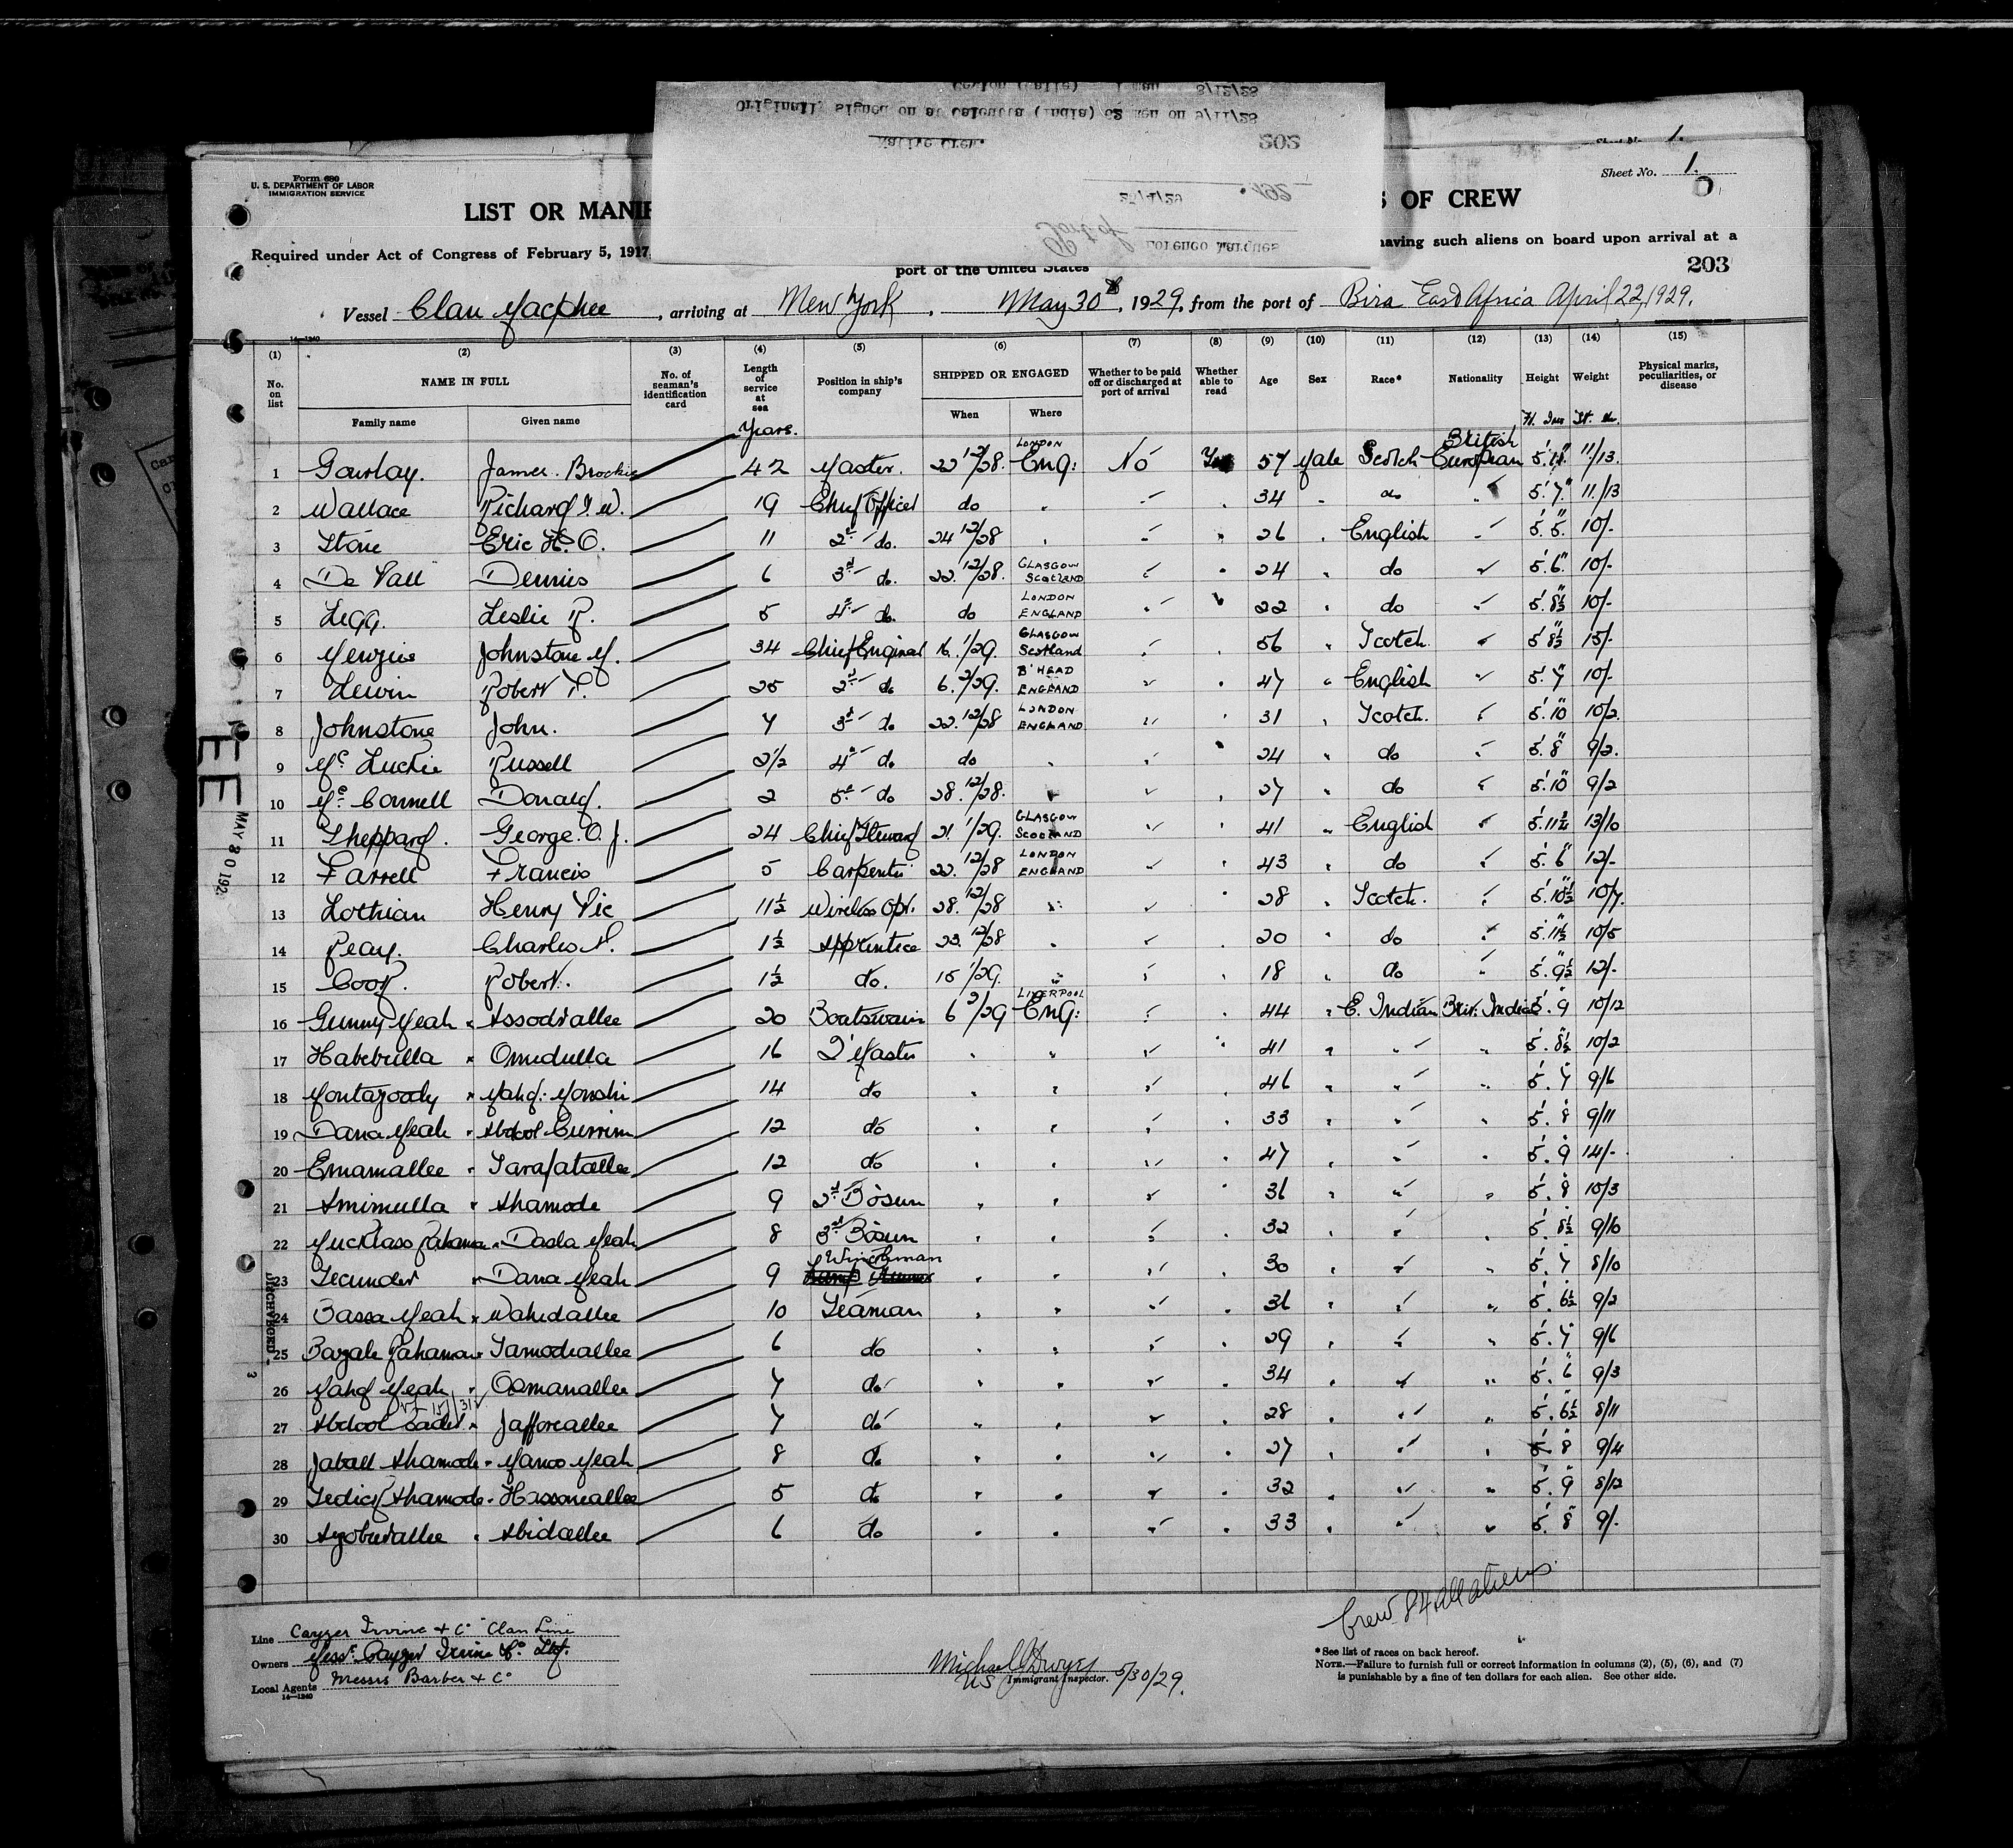 Ceylon (Galle) 1 man 3/12/28
Originally signed on at Calcutta (India) 62 men on 9/11/28
Native Crew. 202
Lorenco Marques
Sheet No. 1.
Form 680
U. S. DEPARTMENT OF LABOR
IMMIGRATION SERVICE
Sheet No. 1.
LIST OR MANIF S OF CREW
Required under Act of Congress of February 5, 1917 having such aliens on board upon arrival at a
port of the United States
203
Vessel Clan Macphee, arriving at New York, May 30th, 1929, from the port of Bira East Africa April 22, 1929.
14—1240
(1) (2) (3) (4) (5) (6) (7) (8) (9) (10) (11) (12) (13) (14) (15)
No. on list NAME IN FULL No. of seaman's identification card Length of service at sea Position in ship's company SHIPPED OR ENGAGED Whether to be paid off or discharged at port of arrival Whether able to read Age Sex Race* Nationality Height Weight Physical marks, peculiarities, or disease
Family name Given name Years. When Where Ft. Ins St. lbs
1 Gourlay. James. Brockie 42 Master. 22 12/28. LONDON Eng: No Yes 57 Male Scotch British European 11/13.
2 Wallace Richard I. W. 19 Chief Officer do " " " 34 " do " 5'. 7" 11/13
3 Stone Eric H. O. 11 2nd do. 24 12/28 " " " 26 " English " 5'. 5" 10/-
4 De Vall Dennis 6 3rd do. 22. 12/28. GLASGOW Scotland " " 24 " do " 5'. 6" 10/-
5 Legg. Leslie R. 5 4th do. do LONDON ENGLAND " " 22 " do " 5'. 8½" 10/-
6 Menzies Johnstone M. 34 Chief Engineer 16. 1/29. GLASGOW Scotland " " 56 " Scotch " 5' 8½" 15/-
7 Lewin Robert T. 25 2nd do 6. 2/29. B'HEAD ENGLAND " " 47 " English " 5'. 7" 10/-
8 Johnstone John. 7 3rd do 22. 12/28 LONDON ENGLAND " " 31 " Scotch. " 5'. 10 10/2.
9 Mc Luckie Russell 2½ 4th do do " " " 24 " do " 5'. 8" 9/2.
10 Mc Connell Donald. 2 5th do 28. 12/28. " " " 27 " do " 5'. 10" 9/2
11 Sheppard. George. O. J. 24 Chief Steward 21. 1/29. GLASGOW SCOTLAND " " 41 " English " 5'. 11¾ 13/10
12 Farrell Francis 5 Carpenter 22. 12/28 LONDON ENGLAND " " 43 " do " 5'. 6" 12/-
13 Lothian Henry Vic 11½ Wireless Opr. 28. 12/28 " " " 28 " Scotch. " 5'. 10½" 10/7.
14 Peay. Charles N. 1½ Apprentice 23. 12/28 " " " 20 " do " 5'. 11½" 10/5
15 Cook. Robert. 1½ do. 15 1/29. " " " 18 " do " 5'. 9½" 12/-
16 Gunny Meah " Assodrallee 20 Boatswain 6 2/29 LIVERPOOL Eng: " " 44 " E. Indian Brit. Indian 5'. 9 10/12
17 Habebulla " Omedulla 16 Q'Master " " " " 41 " " " 5'. 8½" 10/2
18 Montazoody " Mahd: Monshi 14 do " " " " 46 " " " 5'. 7" 9/6
19 Dana Meah " Abdool Currim 12 do " " " " 33 " " " 5'. 8" 9/11
20 Emamallee " Sarafatallee 12 do " " " " 47 " " " 5'. 9" 14/-
21 Aminulla " Ahamode 9 2nd Bosun " " " " 36 " " " 5'. 8" 10/3
22 Mucklass Rahaman " Dasla Meah 8 3rd Bosun " " " " 32 " " " 5'. 8½" 9/10
23 Secunder " Dana Meah 9 Winchman " " " " 30 " " " 5'. 7" 8/10
24 Bassa Meah " Wahedallee 10 Seaman " " " " 36 " " " 5'. 6½" 9/2
25 Bazale Rahaman " Samodrallee 6 do " " " " 29 " " " 5'. 7" 9/6
26 Mahd Meah " Osmanallee 7 do " " " " 34 " " " 5'. 6" 9/3
27 Abdool Cader " Jafforeallee 7 do " " " " 28 " " " 5'. 6½" 8/11
28 Jaball Ahamode " Manoo Meah 8 do " " " " 27 " " " 5'. 8" 9/4
29 Sedick Ahamode " Hassoneallee 5 do " " " " 32 " " " 5'. 9" 8/12
30 Ayobedallee " Abidallee 6 do " " " " 33 " " " 5'. 8" 9/-
MAY 30 192
Crew 84 all aliens
Line Cayzer Irvine & Co "Clan Line"
Owners Messrs. Cayzer Irvine & Co. Ltd.
Local Agents Messrs Barber & Co
14—1240
Michael Dwyer 5/30/29.
US Immigrant Inspector.
*See list of races on back hereof.
NOTE.—Failure to furnish full or correct information in columns (2), (5), (6), and (7)
is punishable by a fine of ten dollars for each alien. See other side.